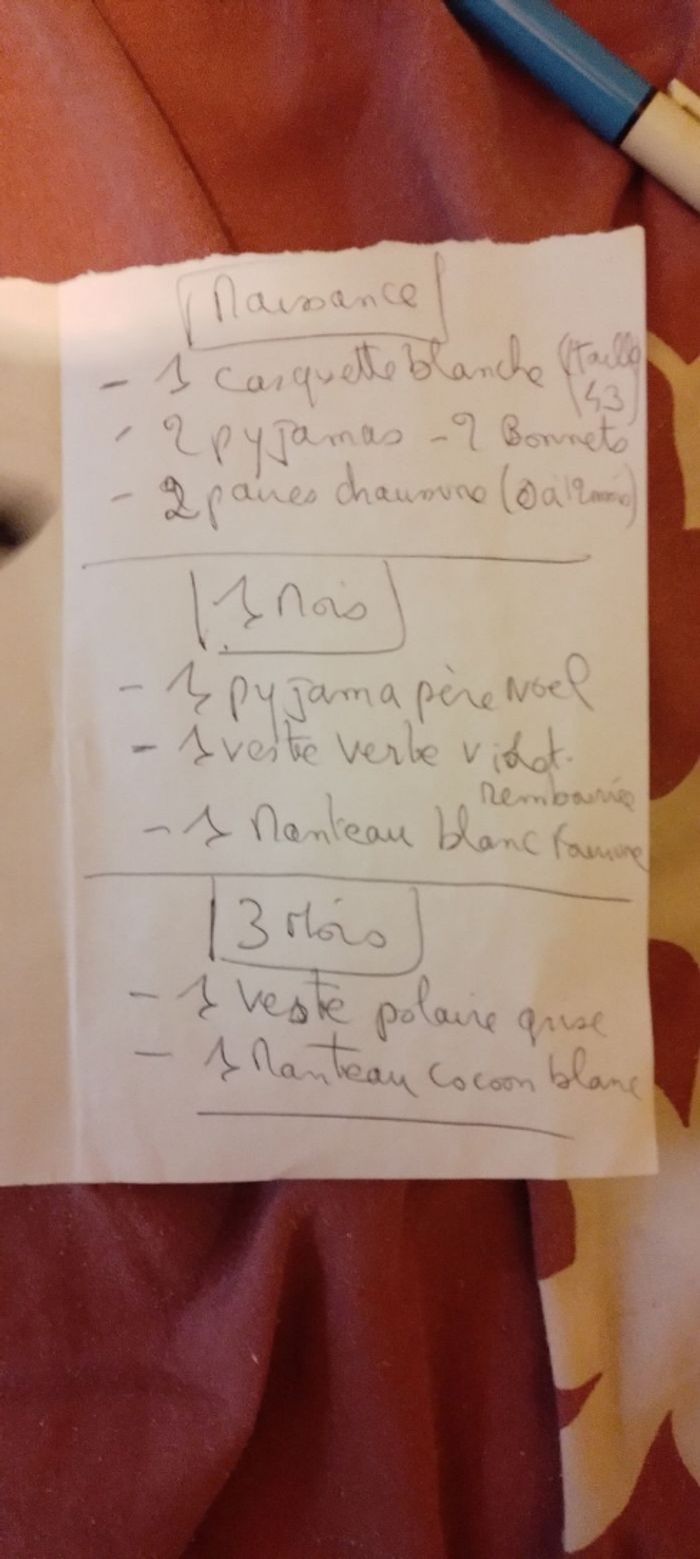 Naissance
- 1 casquette blanche (taille
43)
- 2 pyjamas - 2 Bonnets
- 2 paires chaussure (0 à 12 mois)
1 Mois
- 1 pyjama père Noel
- 1 veste verte
- 1 Manteau blanc
3 Mois
- 1 veste polaire grise
- 1 Manteau cocoon blanc